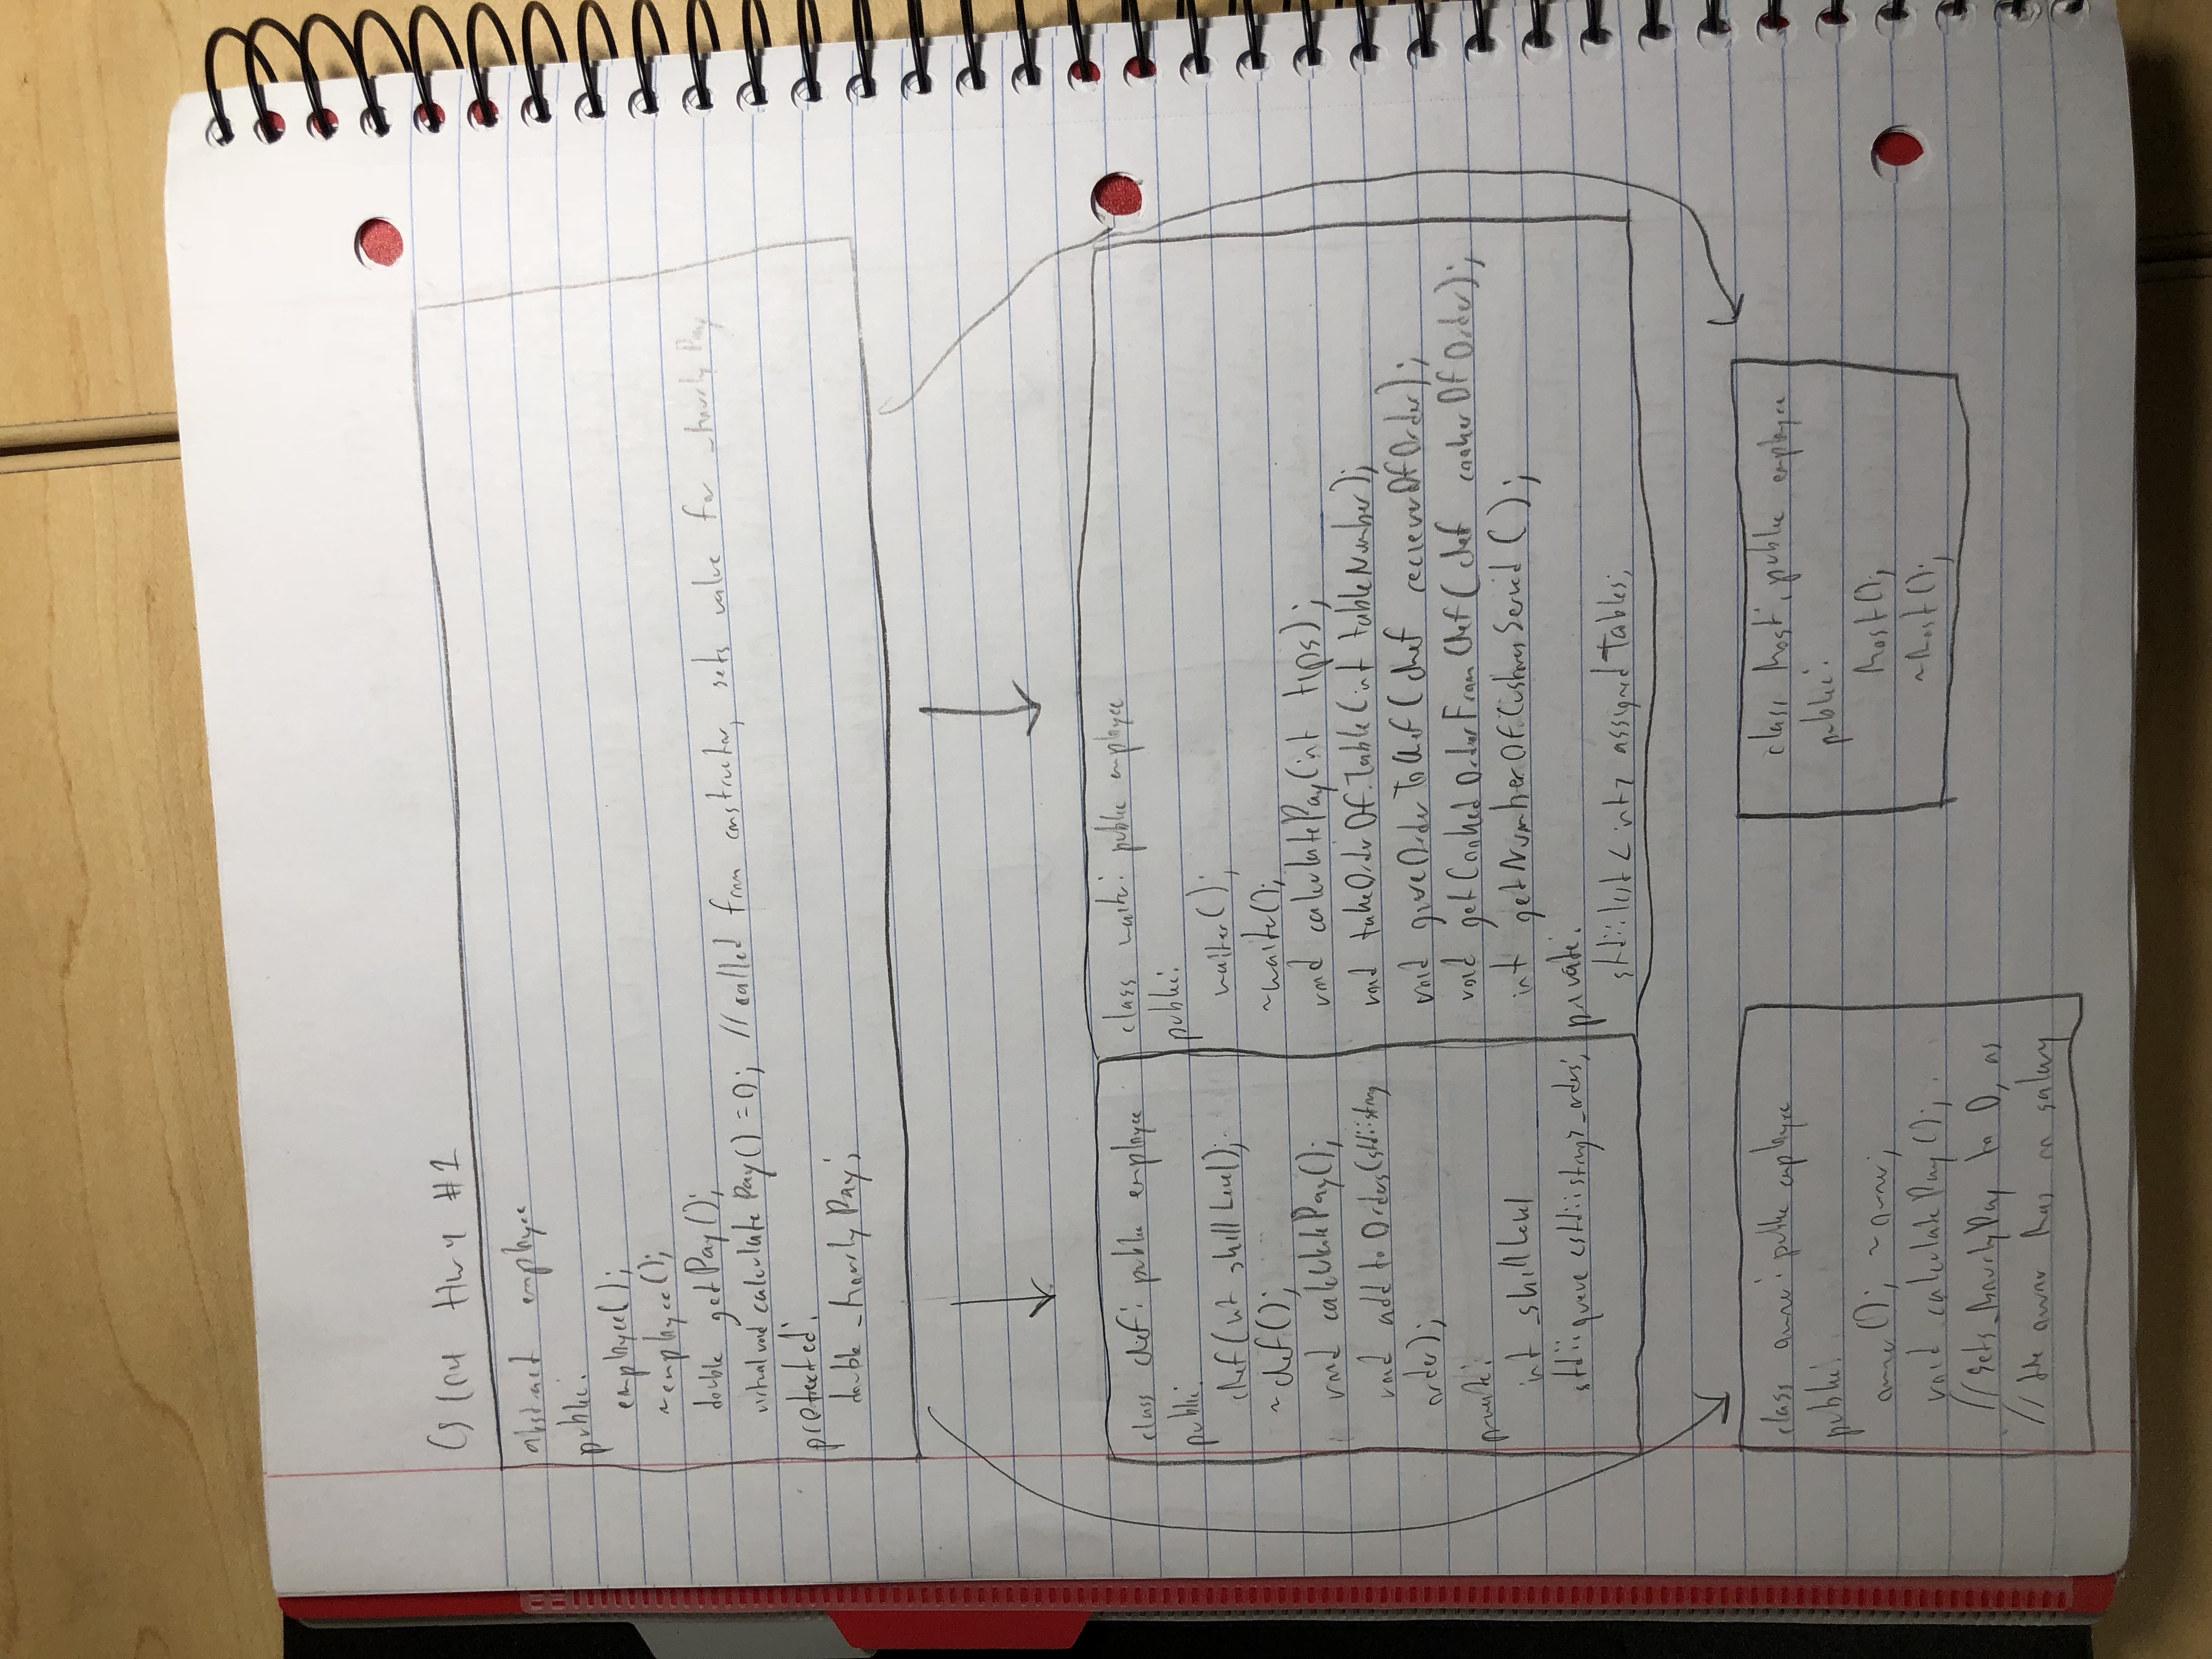 Hw 4 #1
abstract employee
public:
employee();
~employee();
double getPay();
virtual void calculatePay() = 0; // called from constructor, sets value for _hourlyPay
protected:
double _hourlyPay;
class chef: public employee
public:
chef(int skillLevel);
~chef();
void calculatePay();
void addtoOrders(std::string
order);
private:
int _skillLevel
std::queue<std::string> _orders;
class waiter: public employee
public:
waiter();
~waiter();
void calculatePay(int tips);
void takeOrderOfTable(int tableNumber);
void giveOrderToChef(chef recieverOfOrder);
void getCookedOrderFromChef(chef cookerOfOrder);
int getNumberOfCustomersServed();
private:
std::list<int> assignedTables;
class owner: public employee
public:
owner(); ~owner;
void calculatePay();
// Sets _hourlyPay to 0, as
// the owner has no salary
class host: public employee
public:
host();
~host();